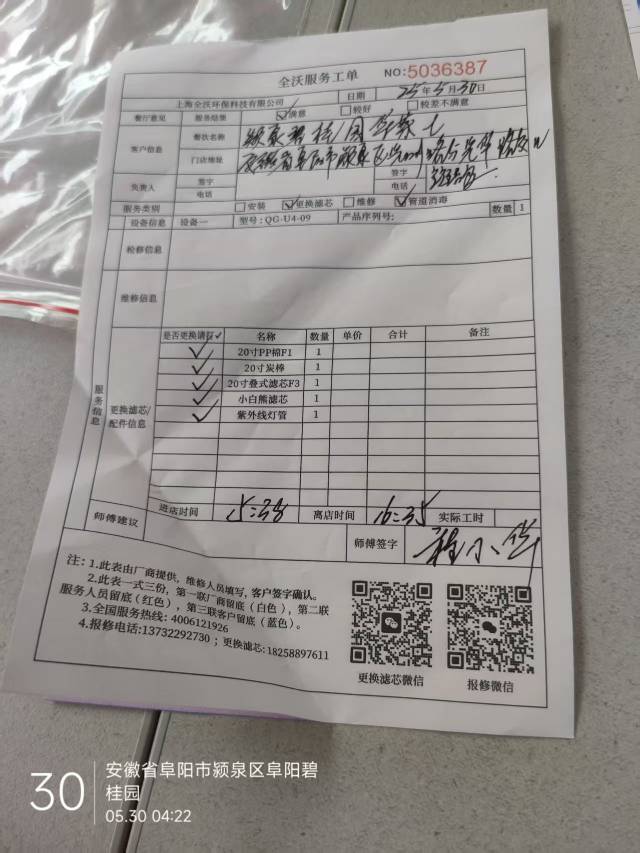 全沃服务工单 NO:5036387
上海全沃环保科技有限公司 日期 25年5月30日
餐厅意见 服务结果 ☑满意 □较好 □较差不满意
客户信息 餐饮名称 颍泉碧桂园华莱士
门店地址 安徽省阜阳市颍泉区
负责人 签字 签字
电话 电话
服务类别 □安装 ☑更换滤芯 □维修 ☑管道消毒
设备信息 设备一 型号:QG-U4-09 产品序列号: 数量 1
检修信息
维修信息
服务信息
更换滤芯/配件信息
是否更换请打✓ 名称 数量 单价 合计 备注
✓ 20寸PP棉F1 1
✓ 20寸炭棒 1
✓ 20寸叠式滤芯F3 1
✓ 小白熊滤芯 1
✓ 紫外线灯管 1
进店时间 15:38 离店时间 16:35 实际工时
师傅建议 师傅签字
注: 1.此表由厂商提供,维修人员填写,客户签字确认。
2.此表一式三份,第一联厂商留底(白色),第二联
服务人员留底(红色),第三联客户留底(蓝色)。
3.全国服务热线: 4006121926
4.报修电话:13732292730 ; 更换滤芯:18258897611
更换滤芯微信 报修微信
30
安徽省阜阳市颍泉区阜阳碧
桂园
05.30 04:22